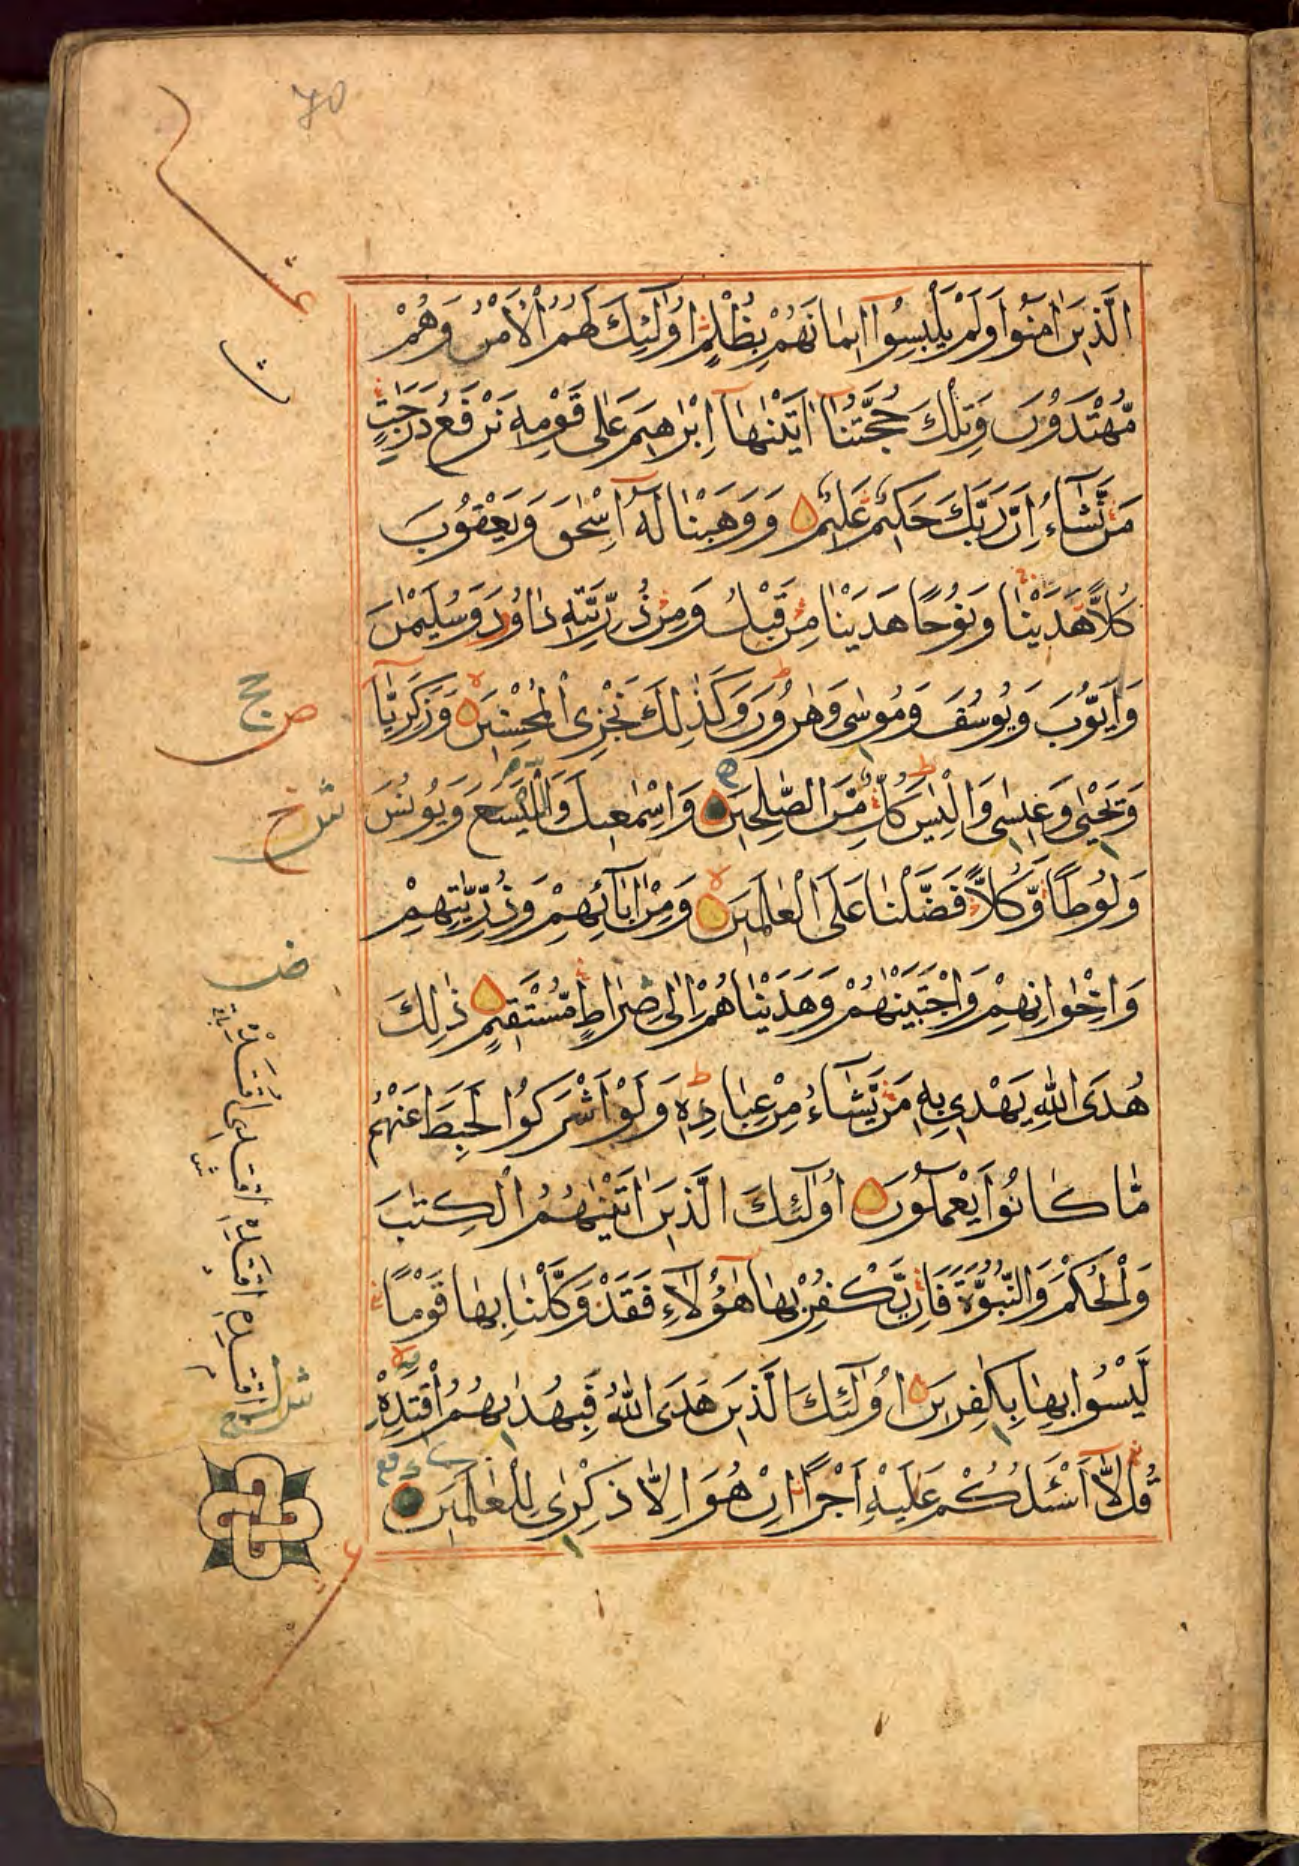 70
الَّذِينَ اٰمَنُوا وَلَمْ يَلْبِسُوا اِيمَانَهُمْ بِظُلْمٍ اُولٰئِكَ لَهُمُ الْاَمْنُ وَهُمْ
مُّهْتَدُونَ وَتِلْكَ حُجَّتُنَا اٰتَيْنٰهَا اِبْرٰهِيمَ عَلٰى قَوْمِهٖ نَرْفَعُ دَرَجٰتٍ
مَّن نَّشَاءُ اِنَّ رَبَّكَ حَكِيمٌ عَلِيمٌ وَوَهَبْنَا لَهُ اِسْحٰقَ وَيَعْقُوبَ
كُلًّا هَدَيْنَا وَنُوحًا هَدَيْنَا مِن قَبْلُ وَمِن ذُرِّيَّتِهٖ دَاوُدَ وَسُلَيْمٰنَ
وَاَيُّوبَ وَيُوسُفَ وَمُوسٰى وَهٰرُونَ وَكَذٰلِكَ نَجْزِى الْمُحْسِنِينَ وَزَكَرِيَّا
وَيَحْيٰى وَعِيسٰى وَاِلْيَاسَ كُلٌّ مِّنَ الصّٰلِحِينَ وَاِسْمٰعِيلَ وَالْيَسَعَ وَيُونُسَ
وَلُوطًا وَّكُلًّا فَضَّلْنَا عَلَى الْعٰالَمِينَ وَمِنْ اٰبَائِهِمْ وَذُرِّيّٰتِهِمْ
وَاِخْوٰانِهِمْ وَاجْتَبَيْنٰهُمْ وَهَدَيْنَاهُمْ اِلٰى صِرَاطٍ مُّسْتَقِيمٍ ذٰلِكَ
هُدَى اللّٰهِ يَهْدِى بِهٖ مَن يَّشَاءُ مِنْ عِبَادِهٖ وَلَوْ اَشْرَكُوا لَحَبِطَ عَنْهُم
مَّا كَانُوا يَعْمَلُونَ اُولٰئِكَ الَّذِينَ اٰتَيْنٰهُمُ الْكِتٰبَ
وَالْحُكْمَ وَالنُّبُوَّةَ فَاِن يَّكْفُرْ بِهَا هٰؤُلَاءِ فَقَدْ وَكَّلْنَا بِهَا قَوْمًا
لَّيْسُوا بِهَا بِكٰفِرِينَ اُولٰئِكَ الَّذِينَ هَدَى اللّٰهُ فَبِهُدٰىهُمُ اقْتَدِهْ
قُل لَّا اَسْئَلُكُمْ عَلَيْهِ اَجْرًا اِنْ هُوَ اِلَّا ذِكْرٰى لِلْعٰالَمِينَ